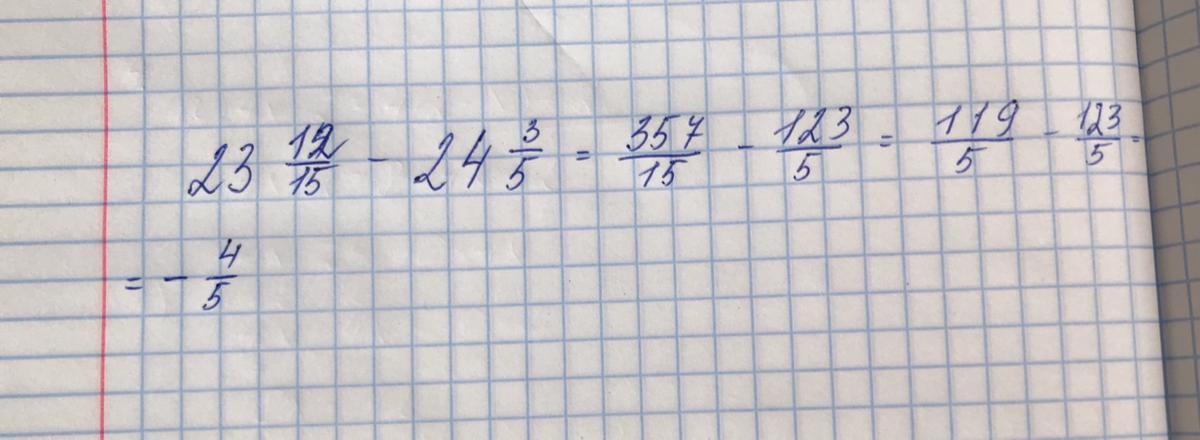 23 12/15 - 24 3/5 = 357/15 - 123/5 = 119/5 - 123/5 =
= - 4/5